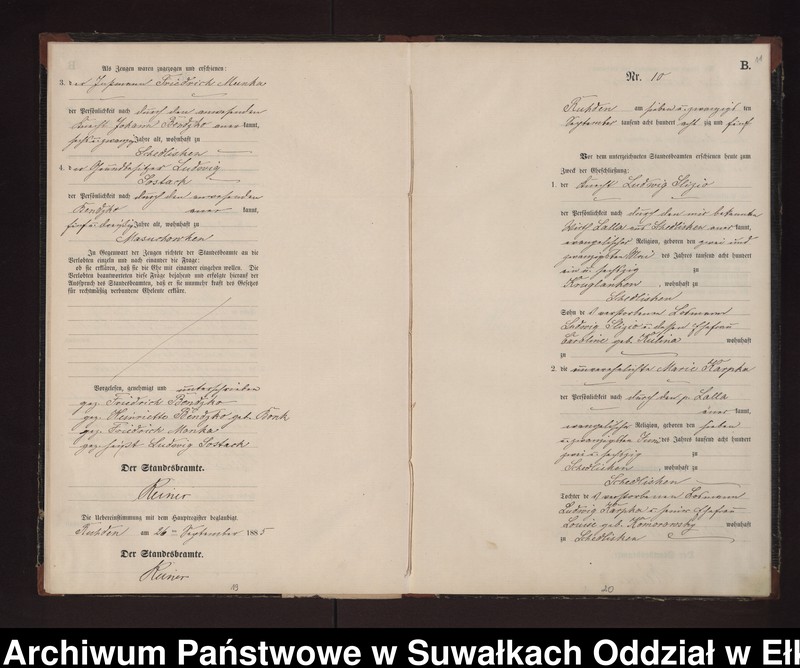 Als Zeugen waren zugezogen und erschienen:
3. der Instmann Friedrich Munka
der Persönlichkeit nach durch den anwesenden
Knecht Johann Bendzko anerkannt,
sechs u. zwanzig Jahre alt, wohnhaft zu
Schedlisken
4. der Grundbesitzer Ludwig
Sostack
der Persönlichkeit nach durch den anwesenden
Bendzko anerkannt,
fünf u. dreißig Jahre alt, wohnhaft zu
Masuchowken
In Gegenwart der Zeugen richtete der Standesbeamte an die
Verlobten einzeln und nach einander die Frage:
ob sie erklären, daß sie die Ehe mit einander eingehen wollen. Die
Verlobten beantworteten diese Frage bejahend und erfolgte hierauf der
Ausspruch des Standesbeamten, daß er sie nunmehr kraft des Gesetzes
für rechtmäßig verbundene Eheleute erkläre.
Vorgelesen, genehmigt und unterschrieben
gez. Friedrich Bendzko
gez. Heinriette Bendzko geb. Bonk
gez. Friedrich Monka
gez. Ludwig Sostack
Der Standesbeamte.
Reiner
Die Uebereinstimmung mit dem Hauptregister beglaubigt.
Ruhden am 26ten September 1885
Der Standesbeamte.
Reiner
19
B.
Nr. 10
Ruhden am sieben u. zwanzigsten
September tausend acht hundert achtzig und fünf.
Vor dem unterzeichneten Standesbeamten erschienen heute zum
Zweck der Eheschließung:
1. der Knecht Ludwig Slizio
der Persönlichkeit nach durch den mir bekannten
Wirth Lalla aus Schedlisken anerkannt,
evangelischer Religion, geboren den zwei und
zwanzigsten Mai des Jahres tausend acht hundert
ein u. sechszig zu
Kruglanken, wohnhaft zu
Schedlisken
Sohn des verstorbenen Losmann
Ludwig Slizio u. dessen Ehefrau
Caroline geb. Kulina wohnhaft
zu
2. die unverehelichte Marie Karpka
der Persönlichkeit nach durch den p. Lalla
anerkannt,
evangelische Religion, geboren den sieben
u. zwanzigsten Juni des Jahres tausend acht hundert
zwei u. sechszig zu
Schedlisken, wohnhaft zu
Schedlisken
Tochter des verstorbenen Losmann
Ludwig Karpka u. seiner Ehefrau
Louise geb. Komorowsky wohnhaft
zu Schedlisken
20
Archiwum Państwowe w Suwałkach Oddział w Ełk